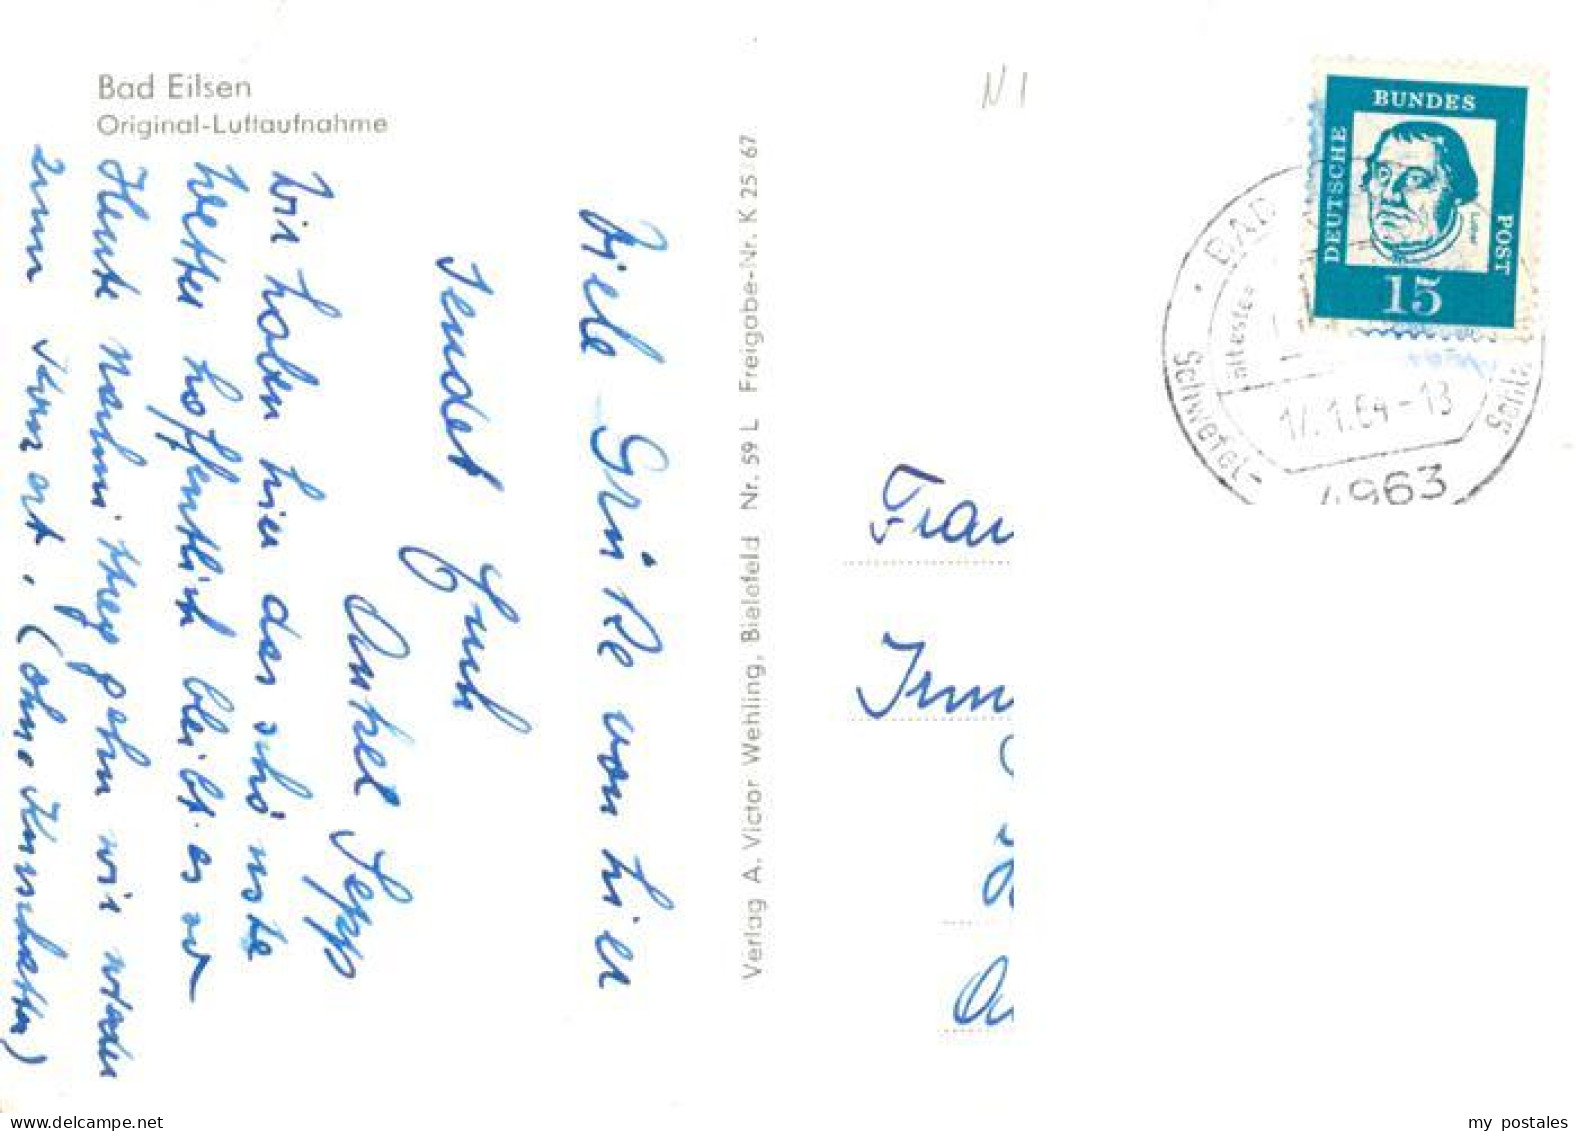 Bad Eilsen
Original-Luftaufnahme
Viele Grüße von hier
sendet Euch
Onkel Sepp
Wir haben hier das schönste
Wetter hoffentlich bleibt es so
Heute nachmittag gehn wir wieder
zum Konzert. (ohne Kurschatten)
Verlag A. Victor Wehling, Bielefeld Nr. 59 L Freigabe-Nr. K 25/67
N 1
DEUTSCHE
BUNDES
POST
Luther
15
BAD
ältestes
Schwefel-
Schla
17.1.64-13
4963
Frau
Irm
www.delcampe.net
my_postales